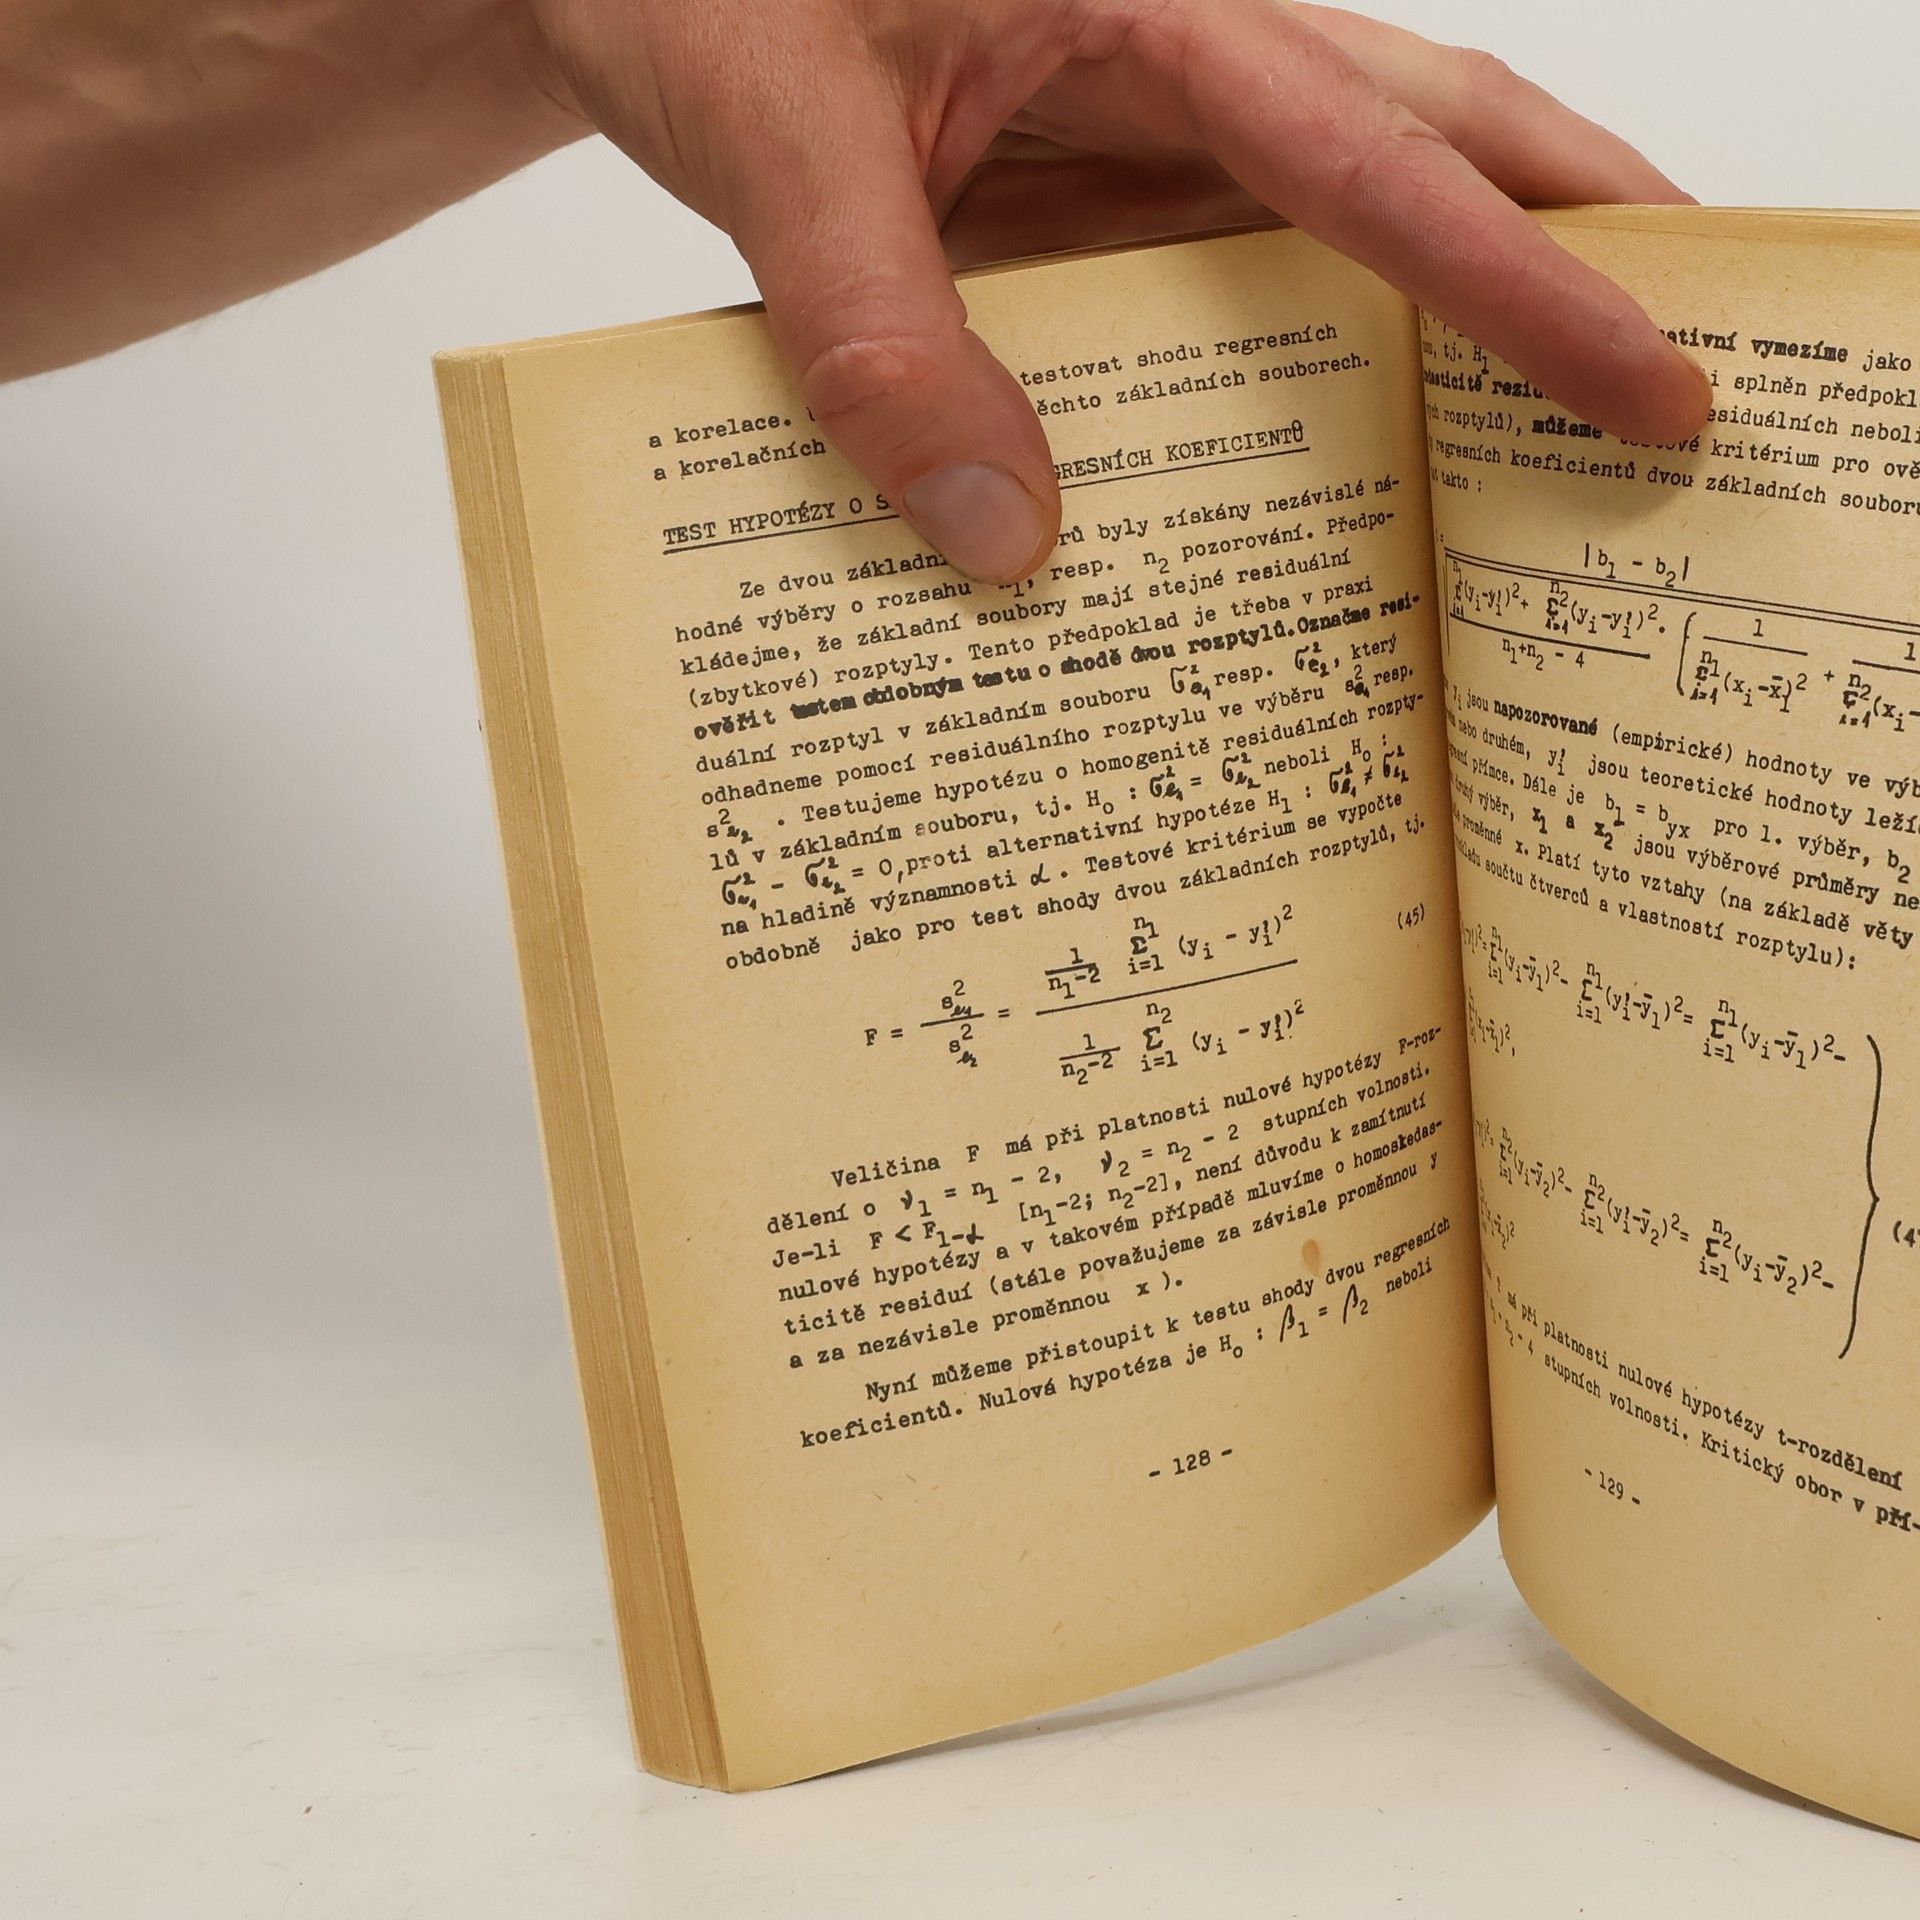 a korelace. testovat shodu regresních
a korelačních ěchto základních souborech.
TEST HYPOTÉZY O S GRESNÍCH KOEFICIENTŮ
Ze dvou základn rů byly získány nezávislé ná-
hodné výběry o rozsahu n₁, resp. n₂ pozorování. Předpo-
kládejme, že základní soubory mají stejné residuální
(zbytkové) rozptyly. Tento předpoklad je třeba v praxi
ověřit testem obdobným testu o shodě dvou rozptylů. Označme resi-
duální rozptyl v základním souboru σ²e₁ resp. σ²e₂, který
odhadneme pomocí residuálního rozptylu ve výběru s²e₁ resp.
s²e₂ . Testujeme hypotézu o homogenitě residuálních rozpty-
lů v základním souboru, tj. H₀ : σ²e₁ = σ²e₂ neboli H₀ :
σ²e₁ - σ²e₂ = 0, proti alternativní hypotéze H₁ : σ²e₁ ≠ σ²e₂
na hladině významnosti α . Testové kritérium se vypočte
obdobně jako pro test shody dvou základních rozptylů, tj.
F = s²e₁ / s²e₂ = 1/(n₁-2) Σ i=1 n₁ (yᵢ - yᵢ')² / 1/(n₂-2) Σ i=1 n₂ (yᵢ - yᵢ')² (45)
Veličina F má při platnosti nulové hypotézy F-roz-
dělení o ν₁ = n₁ - 2, ν₂ = n₂ - 2 stupních volnosti.
Je-li F < F₁₋α [n₁-2; n₂-2], není důvodu k zamítnutí
nulové hypotézy a v takovém případě mluvíme o homoskedas-
ticitě residuí (stále považujeme za závisle proměnnou y
a za nezávisle proměnnou x ).
Nyní můžeme přistoupit k testu shody dvou regresních
koeficientů. Nulová hypotéza je H₀ : β₁ = β₂ neboli
- 128 -
tj. H₁ nativní vymezíme jako
i splněn předpokl
rozptylů), můžeme esiduálních neboli
regresních koeficientů dvou kritérium pro ově
takto : základních souboru
|b₁ - b₂|
Σ(yᵢ-yᵢ')² + Σ i=1 n₂ (yᵢ-yᵢ')² . 1 / Σ i=1 n₁ (xᵢ-x̄₁)² + 1 / Σ i=1 n₂ (xᵢ-
n₁+n₂ - 4
jsou napozorované (empirické) hodnoty ve výb
nebo druhém, yᵢ' jsou teoretické hodnoty ležíc
přímce. Dále je b₁ = byx pro 1. výběr, b₂
výběr, x₁ a x₂ jsou výběrové průměry ne
proměnné x. Platí tyto vztahy (na základě věty
součtu čtverců a vlastností rozptylu):
Σ i=1 n₁ (yᵢ-ȳ₁)² - Σ i=1 n₁ (yᵢ'-ȳ₁)² = Σ i=1 n₁ (yᵢ-ȳ₁)² -
Σ i=1 n₂ (yᵢ-ȳ₂)² - Σ i=1 n₂ (yᵢ'-ȳ₂)² = Σ i=1 n₂ (yᵢ-ȳ₂)² -
má při platnosti nulové hypotézy t-rozdělení
n₂ - 4 stupních volnosti. Kritický obor v pří-
- 129 -